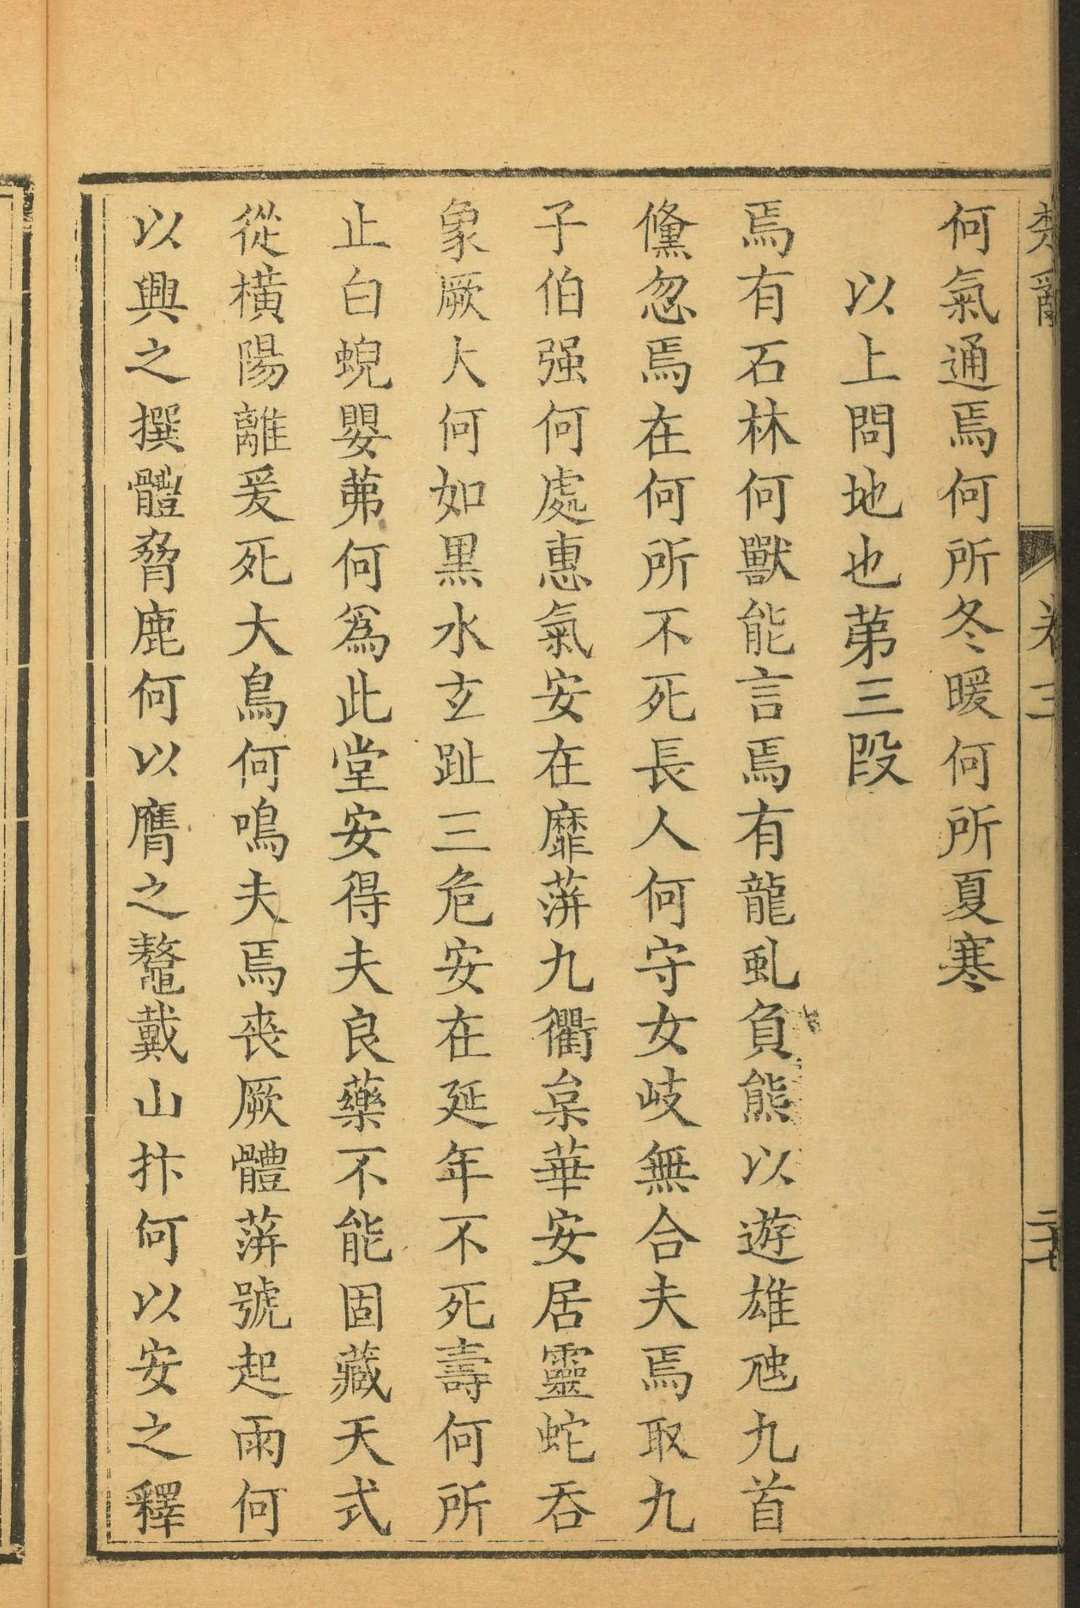 楚辭 卷三 二七
何氣通焉何所冬暖何所夏寒
以上問地也苐三段
焉有石林何獸能言焉有龍虬負熊以遊雄虺九首
儵忽焉在何所不死長人何守女岐無合夫焉取九
子伯强何處惠氣安在靡蓱九衢枲華安居靈蛇吞
象厥大何如黑水玄趾三危安在延年不死壽何所
止白蜺嬰茀何爲此堂安得夫良藥不能固藏天式
從橫陽離爰死大鳥何鳴夫焉丧厥體蓱號起雨何
以興之撰體脅鹿何以膺之鼇戴山抃何以安之釋